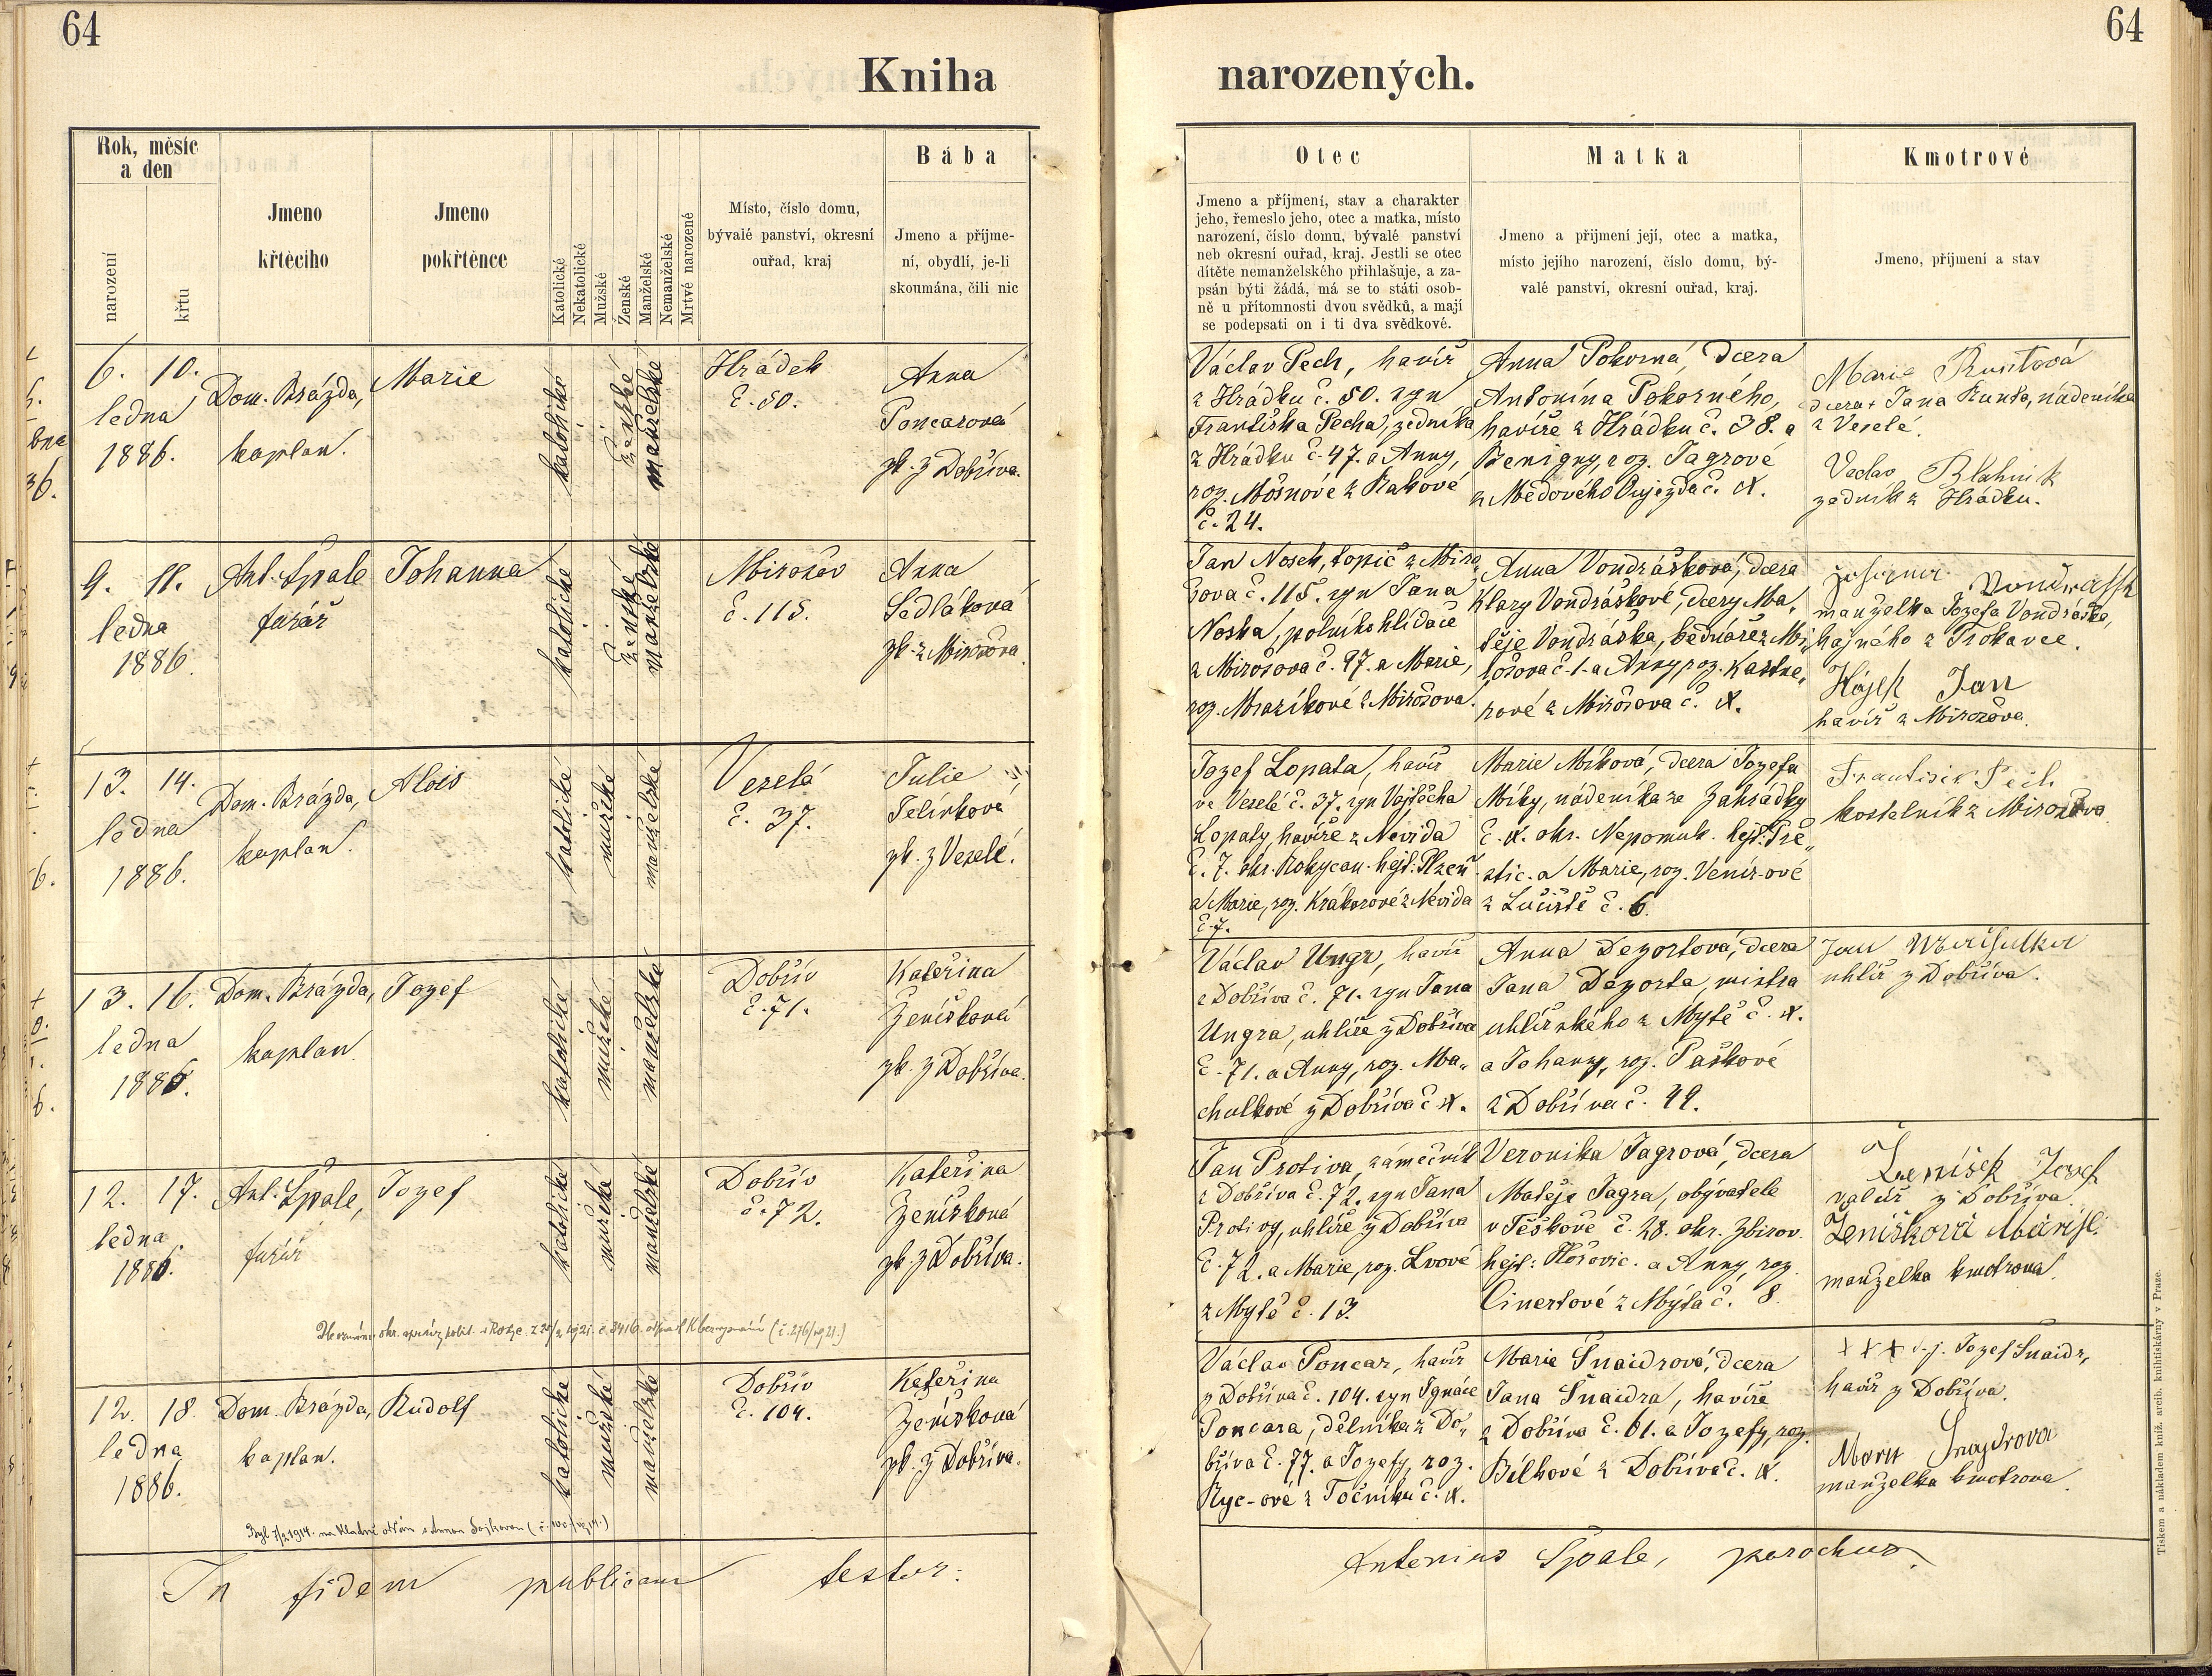 64
64
Kniha
narozených.
Rok, měsíc
a den
narození
křtu
Jmeno
křtěcího
Jmeno
pokřtěnce
Katolické
Nekatolické
Mužské
Ženské
Manželské
Nemanželské
Mrtvé narozené
Místo, číslo domu,
bývalé panství, okresní
ouřad, kraj
Bába
Jmeno a příjme-
ní, obydlí, je-li
skoumána, čili nic
Otec
Jmeno a příjmení, stav a charakter
jeho, řemeslo jeho, otec a matka, místo
narození, číslo domu, bývalé panství
neb okresní ouřad, kraj. Jestli se otec
dítěte nemanželského přihlašuje, a za-
psán býti žádá, má se to státi osob-
ně u přítomnosti dvou svědků, a mají
se podepsati on i ti dva svědkové.
Matka
Jmeno a přijmení její, otec a matka,
místo jejího narození, číslo domu, bý-
valé panství, okresní ouřad, kraj.
Kmotrové
Jmeno, příjmení a stav
6. 10.
ledna
1886.
Dom. Brázda,
kaplan.
Marie
katolické
ženské
manželské
Hrádek
č. 50.
Anna
Poncarová
zk. z Dobříva.
Václav Pech, havíř
z Hrádku č. 50. syn
Františka Pecha, zedníka
z Hrádku č. 47. a Anny,
roz. Mosnové z Rakové
č. 24.
Anna Pokorná, dcera
Antonína Pokorného,
havíře z Hrádku č. 38. a
Benigny, roz. Jagrové
z Medového Oujezda č. N.
Marie Runtová
dcera Jana Runta, nádeníka
z Veselé.
Václav Blahnik
zedník z Hrádku.
9. 11.
ledna
1886.
Ant. Špale
farář
Johanna
katolické
ženské
manželské
Mirošov
č. 115.
Anna
Sedláková
zk. z Mirošova.
Jan Nosek, topič z Miro
šova č. 115. syn Jana
Noska, polního hlídače
z Mirošova č. 97. a Marie,
roz. Mrazíkové z Mirošova.
Anna Vondrášková, dcera
Klary Vondráškové, dcery Ma„
těje Vondráška, bednáře z Mi„
rošova č. 1. a Anny, roz. Kastne„
rové z Mirošova č. N.
manželka Jozefa Vondráška,
hajného z Trokavce.
Hájek Jan
havíř z Mirošova.
13. 14.
ledna
1886.
Dom. Brázda,
kaplan.
Alois
katolické
mužské
manželské
Veselá
č. 37.
Julie
Jelínková
zk. z Veselé.
Jozef Lopata, havíř
ve Veselé č. 37. syn Vojtěcha
Lopaty, havíře z Nevida
č. 7. okr. Rokycan. hejt: Plzeň
a Marie, roz. Krákorové z Nevida
č. 7.
Marie Míková, dcera Jozefa
Míky, nádeníka ze Zahrádky
č. N. okr. Nepomuk. hejt: Pře„
štic. a Marie, roz. Venír-ové
z Lučiště č. 6.
Frantisek Pech
kostelník z Mirošova
13. 16.
ledna
1886.
Dom. Brázda,
kaplan.
Jozef
katolické
mužské
manželské
Dobřív
č. 71.
Kateřina
Ženíšková
zk. z Dobříva.
Václav Ungr, havíř
z Dobříva č. 71. syn Jana
Ungra, uhlíře z Dobříva
č. 71. a Anny, roz. Ma„
chulkové z Dobříva č. N.
Anna Dezortová, dcera
Jana Dezorta, mistra
uhlířského z Mýtě č. N.
a Johany, roz. Paškové
z Dobříva č. 49.
uhlíř z Dobříva.
12. 17.
ledna
1886.
Ant. Špale,
farář
Jozef
katolické
mužské
manželské
Dobřív
č. 72.
Kateřina
Ženíšková
zk. z Dobříva.
Jan Protiva, zámečník
z Dobříva č. 72. syn Jana
Protivy, uhlíře z Dobříva
č. 72. a Marie, roz. Lvové
z Mýtě č. 13.
Veronika Jagrová, dcera
Matěje Jagra, obývatele
v Těškově č. 28. okr. Zbirov.
hejt: Hořovic. a Anny, roz.
Cinertové z Mýta č. 8.
Ženíšek Josef
valíř z Dobříva.
Ženíšková
manželka kmotrova.
12. 18.
ledna
1886.
Dom. Brázda,
kaplan.
Rudolf
katolické
mužské
manželské
Dobřív
č. 104.
Kateřina
Ženíšková
zk. z Dobříva.
Václav Poncar, havíř
z Dobříva č. 104. syn Ignáce
Poncara, dělníka z Do„
bříva č. 77. a Jozefy, roz.
Ryc-ové z Točníku č. N.
Marie Šnaidrová, dcera
Jana Šnaidra, havíře
z Dobříva č. 61. a Jozefy, roz.
Bělkové z Dobříva č. N.
+++ Jozef Šnaidr,
havíř z Dobříva.
manželka kmotrova.
In fidem publicam testor:
Antonius Špale, parochus.
Tiskem a nákladem kníž. arcib. knihtiskárny v Praze.